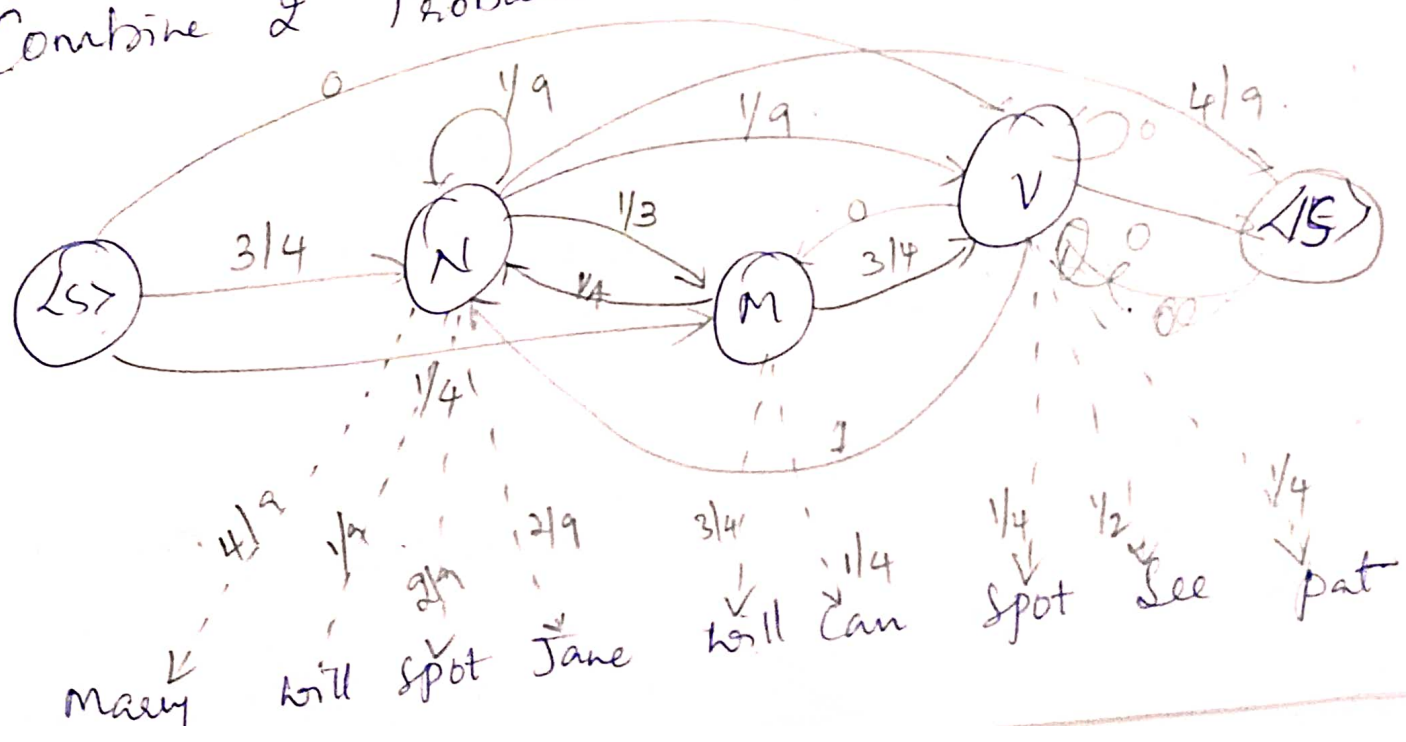 Combine 2
0 1/9 1/9 4/9
<s> 3/4 N 1/3 0 V 0 </S>
1/4 M 3/4 0
1/4 1
4/9 1/9 2/9 2/9 3/4 1/4 1/4 1/2 1/4
Mary will spot Jane will Can spot See pat